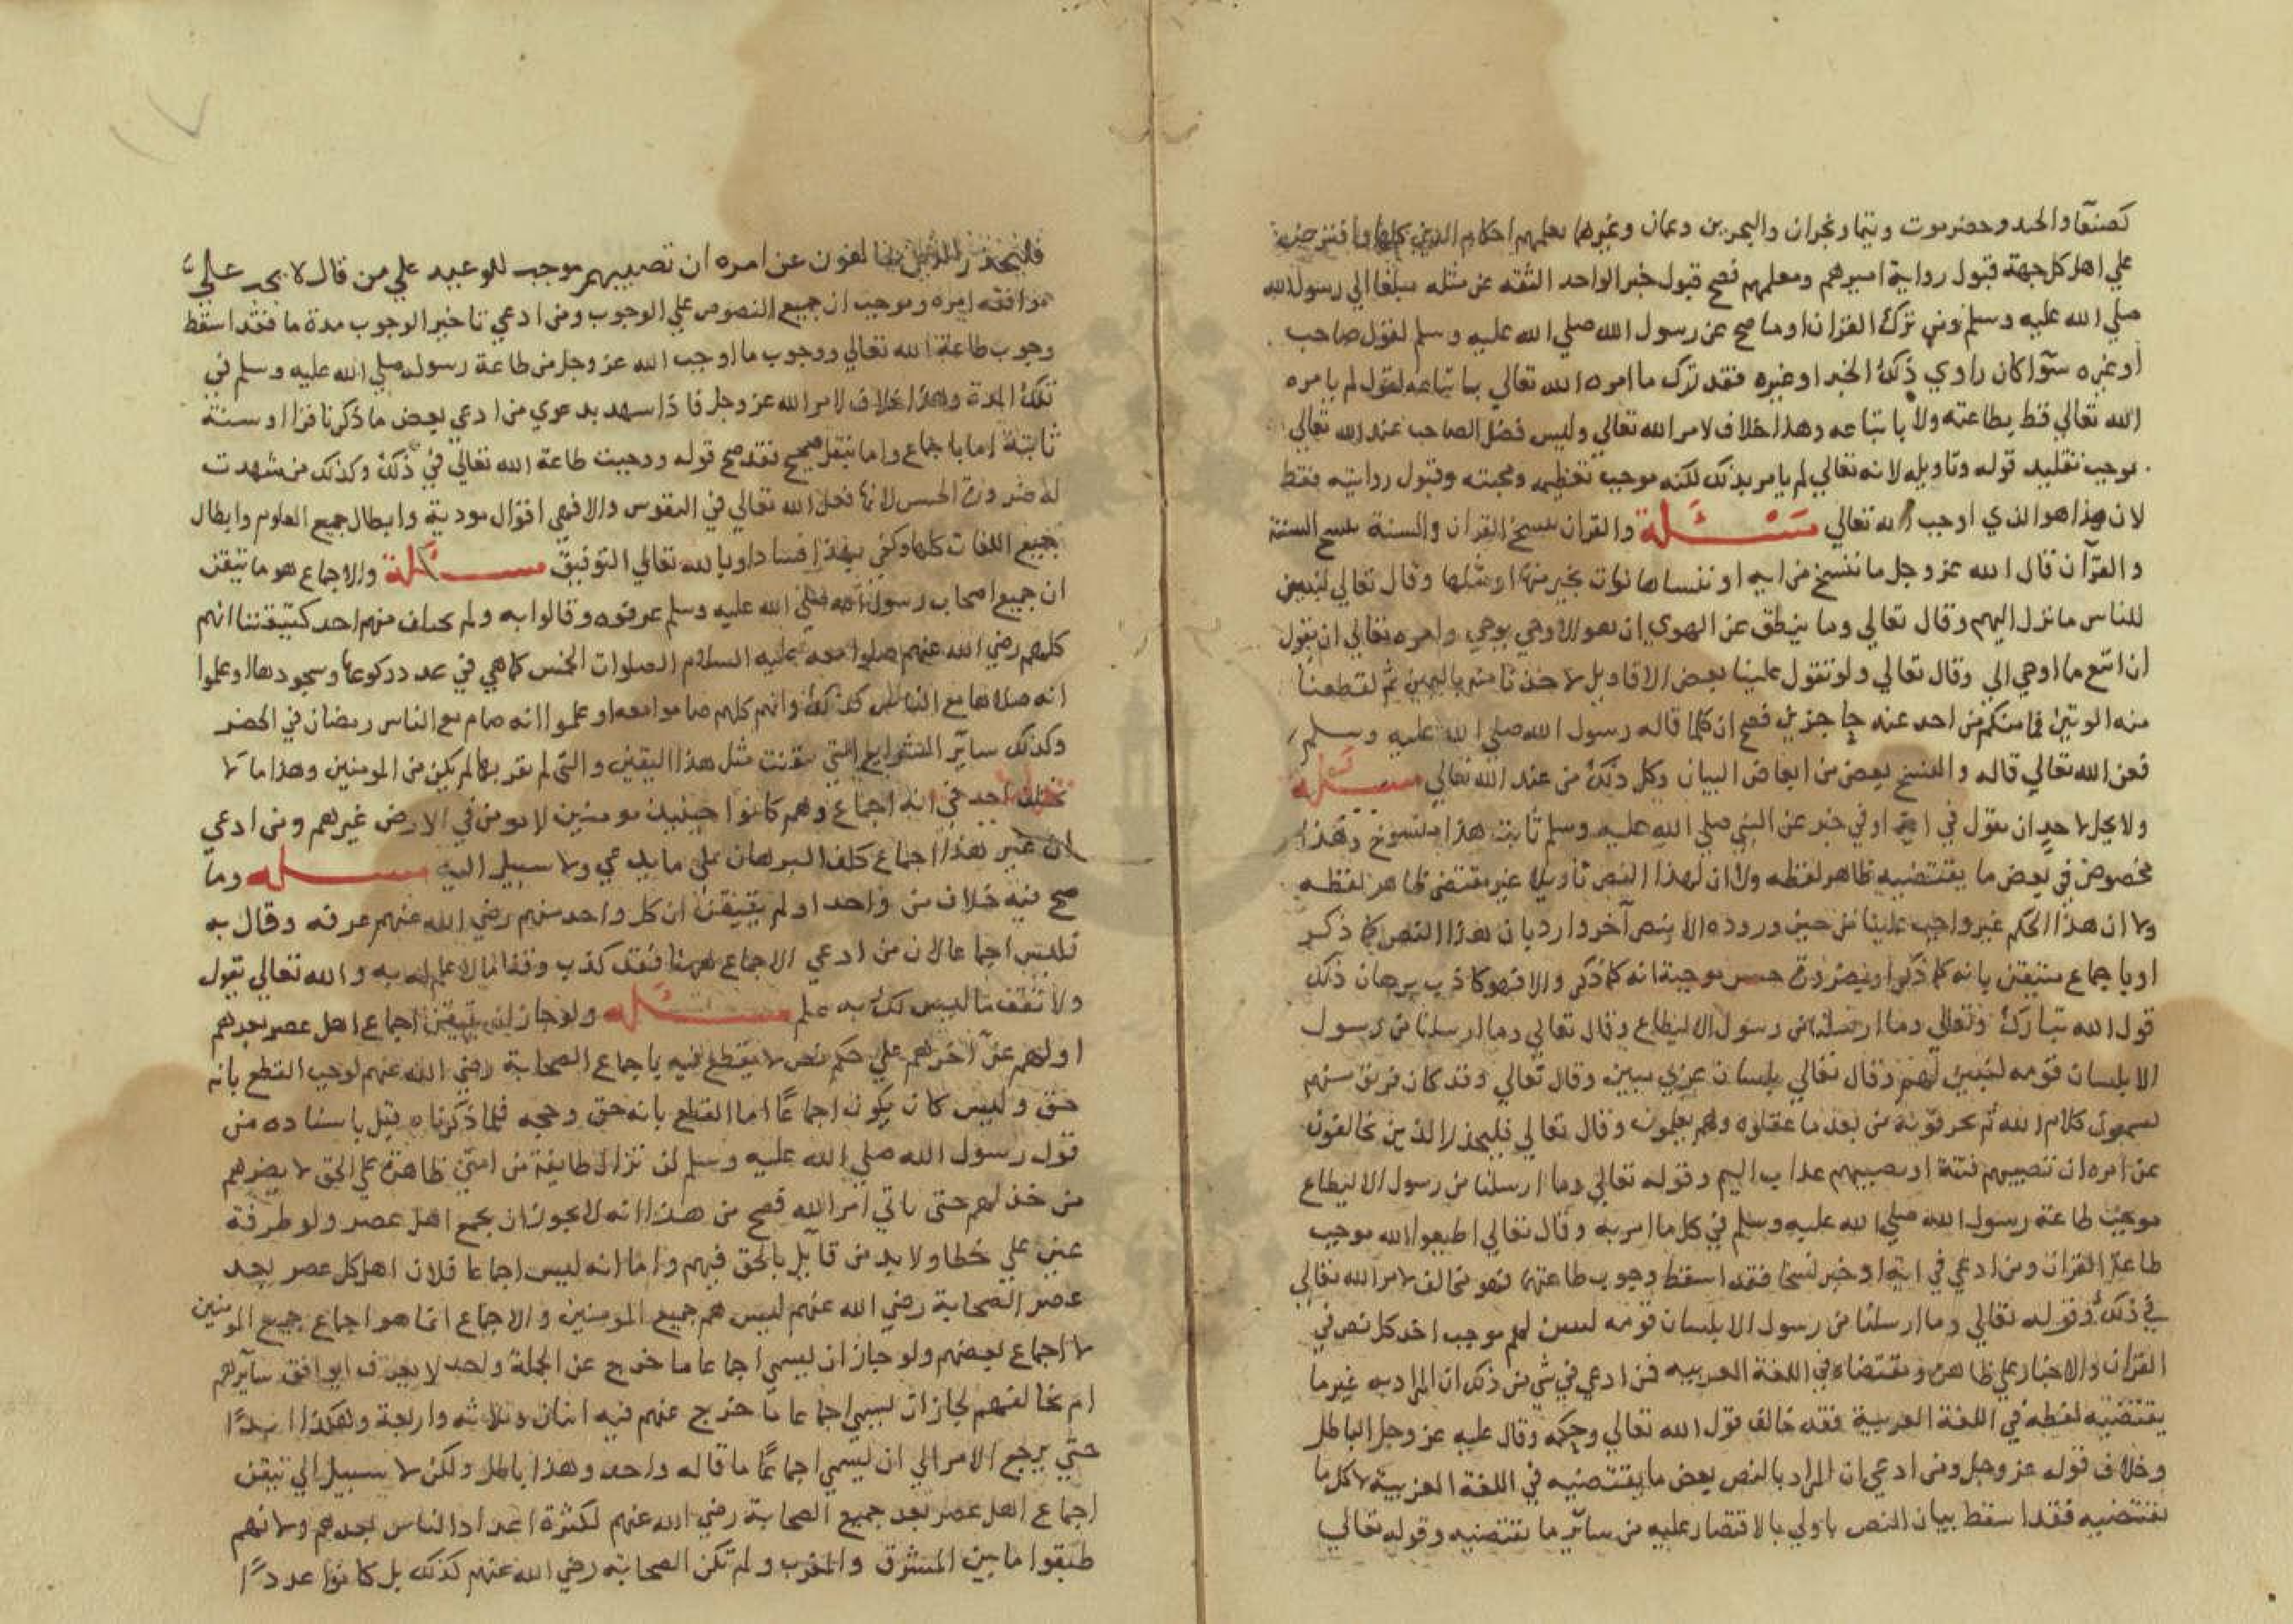 كصنعا والجند وحضرموت وتيما ونجران والبحرين وعمان وغيرها يعلمهم احكام الدين كلها وافترض
علي اهل كل جهة قبول رواية اميرهم ومعلمهم فصح قبول خبر الواحد الثقه عن مثله مبلغا الي رسول الله
صلي الله عليه وسلم ومن ترك القران او ما صح عن رسول الله صلي الله عليه وسلم لقول صاحب
او غيره سوآ كان راوي ذلك الخبر او غيره فقد ترك ما امره الله تعالي باتباعه لقول لم يامره
الله تعالي قط بطاعته ولا باتباعه وهذا خلاف لامر الله تعالي وليس فضل الصاحب عند الله تعالي
موجب تقليد قوله وتاويله لانه تعالي لم يامر بذلك لكنه موجب تعظيمه ومحبته وقبول روايته فقط
لان هذا هو الذي اوجب الله تعالي مسئلة والقران ينسخ القران والسنة تنسخ السنة
والقرآن قال الله عز وجل ما ننسخ من ايه او ننساها نات بخير منها او مثلها وقال تعالي لتبين
للناس ما نزل اليهم وقال تعالي وما ينطق عن الهوي ان هو الا وحي يوحي وامره تعالي ان يقول
ان اتبع ما اوحي الي وقال تعالي ولو تقول علينا بعض الاقاويل لاخذنا منه باليمين ثم لقطعنا
منه الوتين فما منكم من احد عنه حاجزين فصح ان كلما قاله رسول الله صلي الله عليه وسلم
فعن الله تعالي قاله والنسخ بعض من ابعاض البيان وكل ذلك من عند الله تعالي مسئلة
ولا يحل لاحد ان يقول في اية او في خبر عن النبي صلي الله عليه وسلم ثابت هذا منسوخ وهذا
مخصوص في بعض ما يقتضيه ظاهر لفظه ولا ان لهذا النص تاويلا غير مقتضي ظاهر لفظه
ولا ان هذا الحكم غير واجب علينا من حين وروده الا بنص آخر وارد بان هذا النص كما ذكر
او باجماع متيقن بانه كما ذكر او بضرورة حس موجبة انه كما ذكر والا فهو كاذب برهان ذلك
قول الله تبارك وتعالي وما ارسلنا من رسول الا ليطاع وقال تعالي وما ارسلنا من رسول
الا بلسان قومه ليبين لهم وقال تعالي بلسان عربي مبين وقال تعالي وقد كان فريق منهم
يسمعون كلام الله ثم يحرفونه من بعد ما عقلوه وهم يعلمون وقال تعالي فليحذر الذين يخالفون
عن امره ان تصيبهم فتنة او يصيبهم عذاب اليم وقوله تعالي وما ارسلنا من رسول الا ليطاع
موجب طاعة رسول الله صلي الله عليه وسلم في كل ما امر به وقال تعالي اطيعوا الله موجب
طاعة القران ومن ادعي في اية او خبر نسخا فقد اسقط وجوب طاعتها فهو مخالف لامر الله تعالي
في ذلك وقوله تعالي وما ارسلنا من رسول الا بلسان قومه ليبين لهم موجب اخذ كل نص في
القران والاخبار علي ظاهره ومقتضاه في اللغة العربيه فمن ادعي في شي من ذلك ان المراد به غير ما
يقتضيه لفظه في اللغة العربية فقد خالف قول الله تعالي وحكمه وقال عليه عز وجل الباطل
وخلاف قوله عز وجل ومن ادعي ان المراد بالنص بعض ما يقتضيه في اللغة العربية لا كل ما
يقتضيه فقد اسقط بيان النص باولي بالاقتصار عليه من سآئر ما يقتضيه وقوله تعالي
فليحذر الذين يخالفون عن امره ان تصيبهم موجب للوعيد علي من قال لا يجب علي
موافقه امره وموجب ان جميع النصوص علي الوجوب ومن ادعي تاخير الوجوب مدة ما فقد اسقط
وجوب طاعة الله تعالي ووجوب ما اوجب الله عز وجل من طاعة رسوله صلي الله عليه وسلم في
تلك المدة وهذا خلاف لامر الله عز وجل فاذا شهد بدعوي من ادعي بعض ما ذكرنا قرا او سنة
ثابتة اما باجماع واما بنقل صحيح فقد صح قوله ووجبت طاعة الله تعالي في ذلك وكذلك من شهدت
له ضرورة الحس لانها فعل الله تعالي في النفوس والا فهي اقوال مودية وابطال جميع العلوم وابطال
جميع اللغات كلها وكفي بهذا فسادا وبالله تعالي التوفيق مسئلة والاجماع هو ما تيقن
ان جميع اصحاب رسول الله صلي الله عليه وسلم عرفوه وقالوا به ولم يختلف منهم احد كتيقننا انهم
كلهم رضي الله عنهم صلوا معه عليه السلام الصلوات الخمس كما هي في عدد ركوعها وسجودها او علموا
انه صلاها مع الناس كذلك وانهم كلهم صاموا معه او علموا انه صام مع الناس رمضان في الحضر
وكذلك سآئر الشرايع التي تيقنت مثل هذا اليقين والتي لم يقر بها لم يكن من المومنين وهذا ما لا
يختلف احد في انه اجماع وهم كانوا حينيذ مومنين لا مومن في الارض غيرهم ومن ادعي
ان غير هذا اجماع كلف البرهان علي ما يدعي ولا سبيل اليه مسئله وما
صح فيه خلاف من واحد او لم يتيقن ان كل واحد منهم رضي الله عنهم عرفه وقال به
فليس اجماعا لان من ادعي الاجماع ههنا فقد كذب وقفا ما لا علم له به والله تعالي يقول
ولا تقف ما ليس لك به علم مسئله ولو جاز ان يتيقن اجماع اهل عصر بعدهم
اولهم عن آخرهم علي حكم نص لا يقطع فيه باجماع الصحابة رضي الله عنهم لوجب القطع بانه
حق وليس كان يكون اجماعًا اما القطع بانه حق وحجه فلما ذكرناه قبل باسناده من
قول رسول الله صلي الله عليه وسلم لن تزال طايفة من امتي ظاهرة علي الحق لا يضرهم
من خذلهم حتي ياتي امر الله فصح من هذا انه لا يجوز ان يجمع اهل عصر ولو طرفة
عين علي خطا ولا بد من قآيل بالحق فيهم واما انه ليس اجماعا فلان اهل كل عصر بعد
عصر الصحابة رضي الله عنهم ليس هم جميع المومنين والاجماع انما هو اجماع جميع المومنين
لا اجماع بعضهم ولو جاز ان يسمي اجماعا ما خرج عن الجملة واحد لا يعرف ايوافق سآيرهم
ام يخالفهم لجاز ان يسمي اجماعا ما خرج عنهم فيه اثنان وثلاثه واربعة وهكذا ابدًا
حتي يرجع الامر الي ان يسمي اجماعًا ما قاله واحد وهذا باطل ولكن لا سبيل الي تيقن
اجماع اهل عصر بعد جميع الصحابة رضي الله عنهم لكثرة اعداد الناس بعدهم ولانهم
طبقوا ما بين المشرق والمغرب ولم تكن الصحابة رضي الله عنهم كذلك بل كانوا عددًا